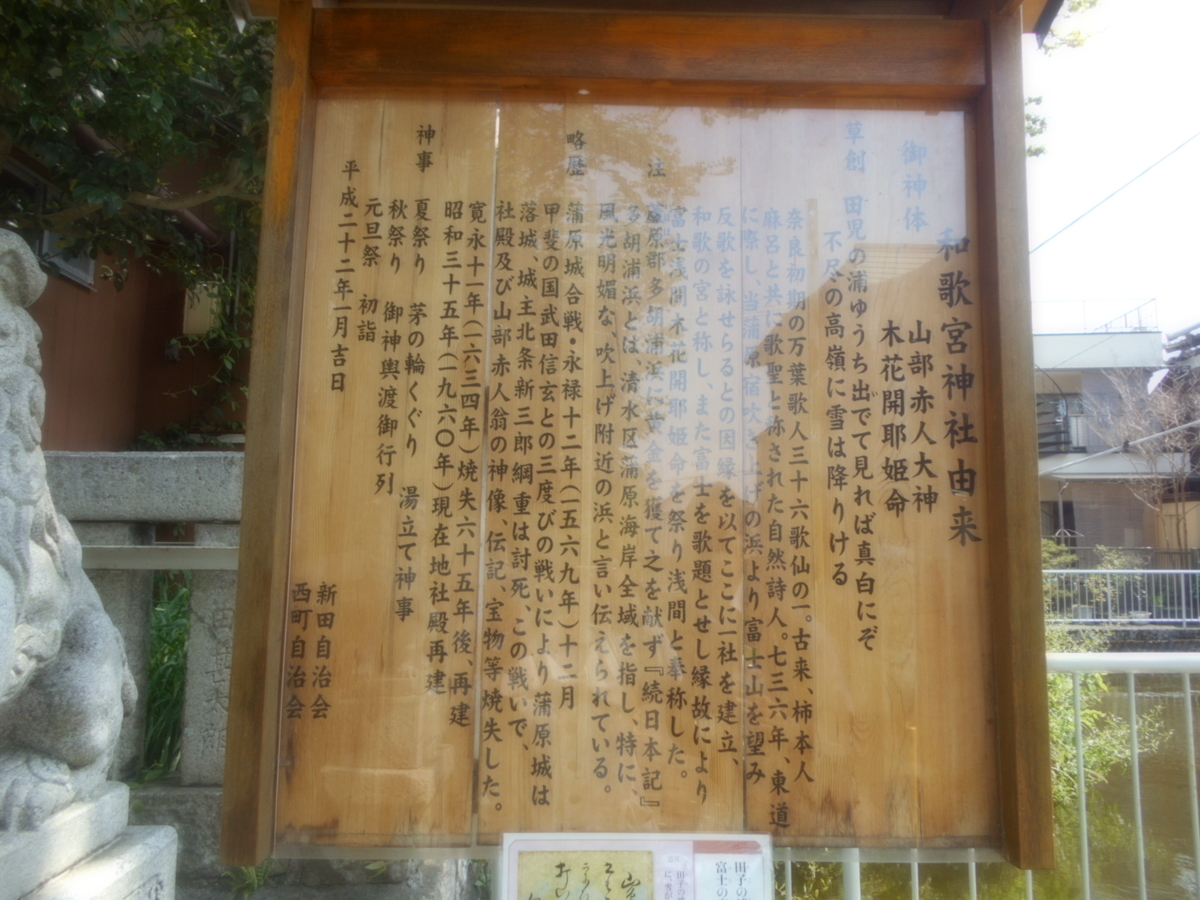 和歌宮神社由来
御神体 山部赤人大神
木花開耶姫命
草創 田児の浦ゆうち出でて見れば真白にぞ
不尽の高嶺に雪は降りける
奈良初期の万葉歌人三十六歌仙の一。古来、柿本人
麻呂と共に歌聖と称された自然詩人。七三六年、東道
に際し、当蒲原宿吹き上げの浜より富士山を望み
反歌を詠せらるとの因縁を以てここに一社を建立、
和歌の宮と称し、また富士を歌題とせし縁故により
富士浅間木花開耶姫命を祭り浅間と奉称した。
注 蘆原郡多胡浦浜に黄金を獲て之を献ず『続日本記』
多胡浦浜とは清水区蒲原海岸全域を指し、特に、
風光明媚な、吹上げ附近の浜と言い伝えられている。
略歴 蒲原城合戦・永禄十二年(一五六九年)十二月
甲斐の国武田信玄との三度びの戦いにより蒲原城は
落城、城主北条新三郎綱重は討死、この戦いで、
社殿及び山部赤人翁の神像、伝記、宝物等焼失した。
寛永十一年(一六三四年)焼失六十五年後、再建
昭和三十五年(一九六〇年)現在地社殿再建
神事 夏祭り 茅の輪くぐり 湯立て神事
秋祭り 御神輿渡御行列
元旦祭 初詣
平成二十二年一月吉日
新田自治会
西町自治会
田子の
富士の